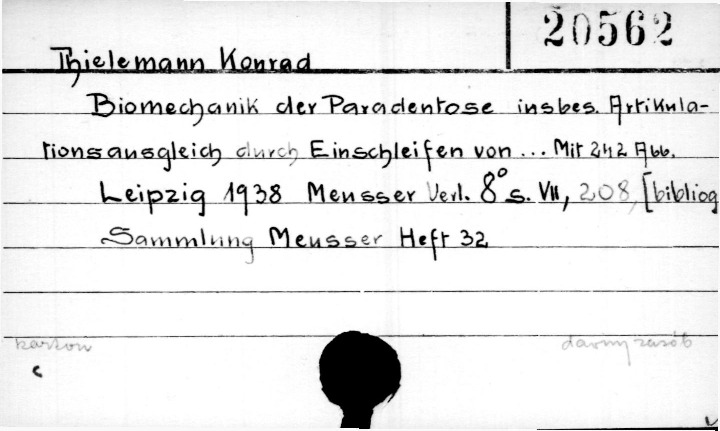 20562
Thielemann Konrad
Biomechanik der Paradentose insbes. Artikula-
tionsausgleich durch Einschleifen von ... Mit 242 Abb.
Leipzig 1938 Meusser Verl. 8° s. VII, 208, [bibliog
Sammlung Meusser Heft 32
karton
dawny zasób
c